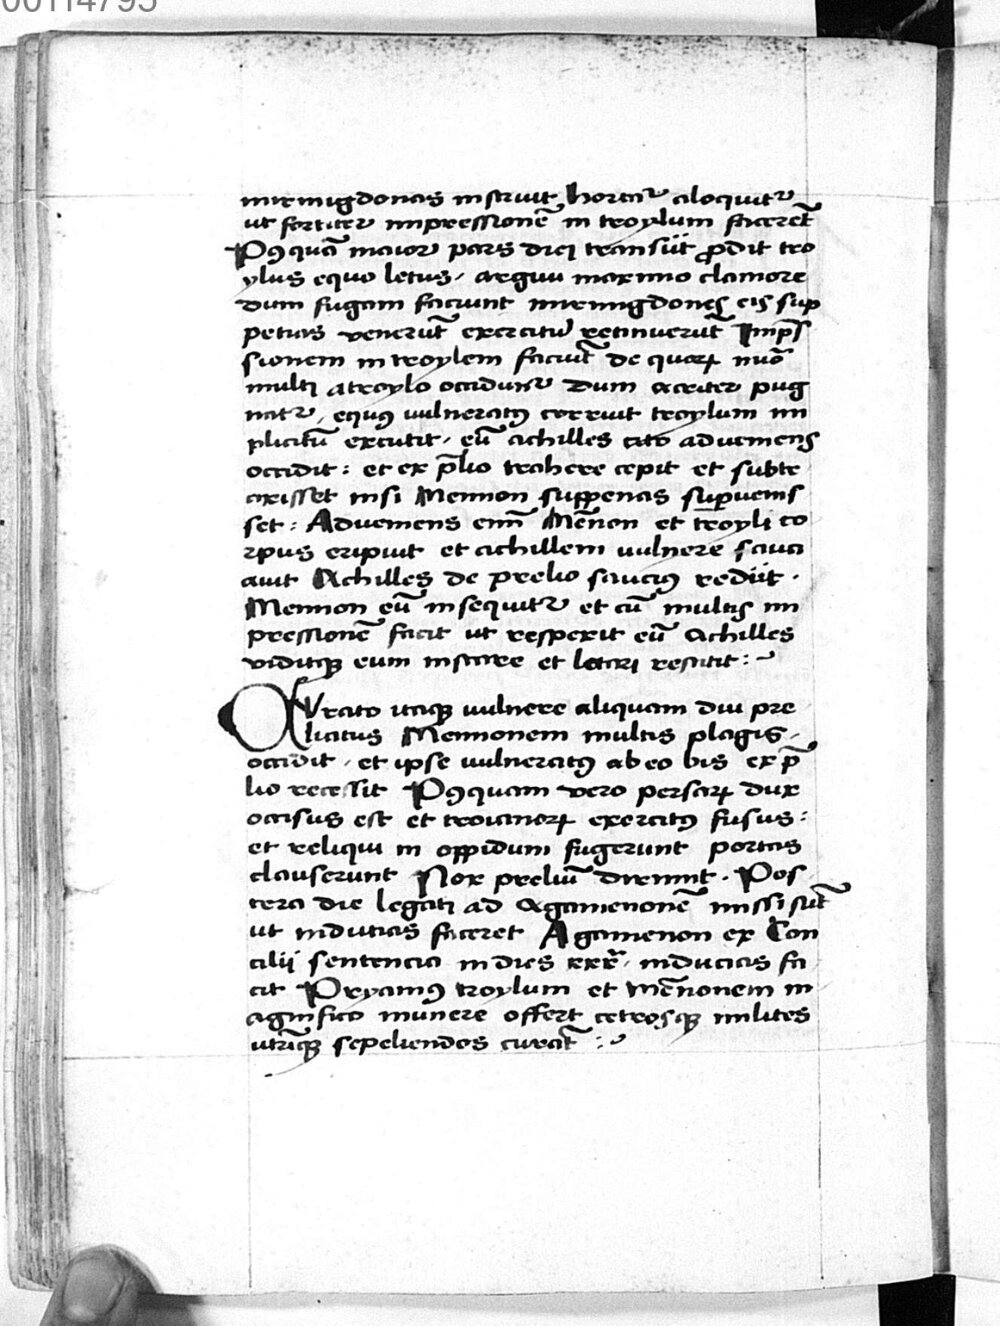 00114795
mirmigdonas instruit hortat᷑ aloquit᷑
ut fortiter impressionē in troylum faceret̄
Pꝯquā maior pars diei transiit ꝓdit tro
ylus equo letus. argiui maximo clamore
dum fugam faciunt mirmigdones eis sup
petias venerūt exercitū retinuerūt Imp̄s
sionem in troylem faciūt de quoꝝ nūo
multi a troylo occidunt᷑ dum acriter pug
nat᷑, equꝯ uulneratꝯ corruit troylum im
plicitū excutit. eū achilles cito adueniens
occidit : et ex p̄lio trahere cepit et subtr
axisset nisi Mennon suppetias superuenis
set : Adueniens enī Mēnon et troyli co
rpus eripuit et achillem uulnere sauci
auit Achilles de prelio sauciꝯ rediit .
Mennon eū insequit᷑ et cū multis im
pressionē facit ut respexit eū Achilles
viditqꝫ eum instare et letari restitit : ~
CUrato itaqꝫ uulnere aliquam diu pre
liatus Mennonem multis plagis.
occidit . et ipse uulneratꝯ ab eo bis ex p̄
lio recessit Pꝯquam vero persaꝝ dux
occisus est et troianoꝝ exercitꝯ fusus :
et reliqui in oppidum fugerunt portas
clauserunt Nox preliū diremit . Pos
tera die legati ad Agamenonē missi sūt
ut inducias faceret Agamenon ex Con
cilii sentencia in dies xxx. inducias fa
cit Pryamꝯ troylum et mēnonem m
agnifico munere offert ceterosqꝫ milites
utrīqꝫ sepeliendos curat̄ : ~